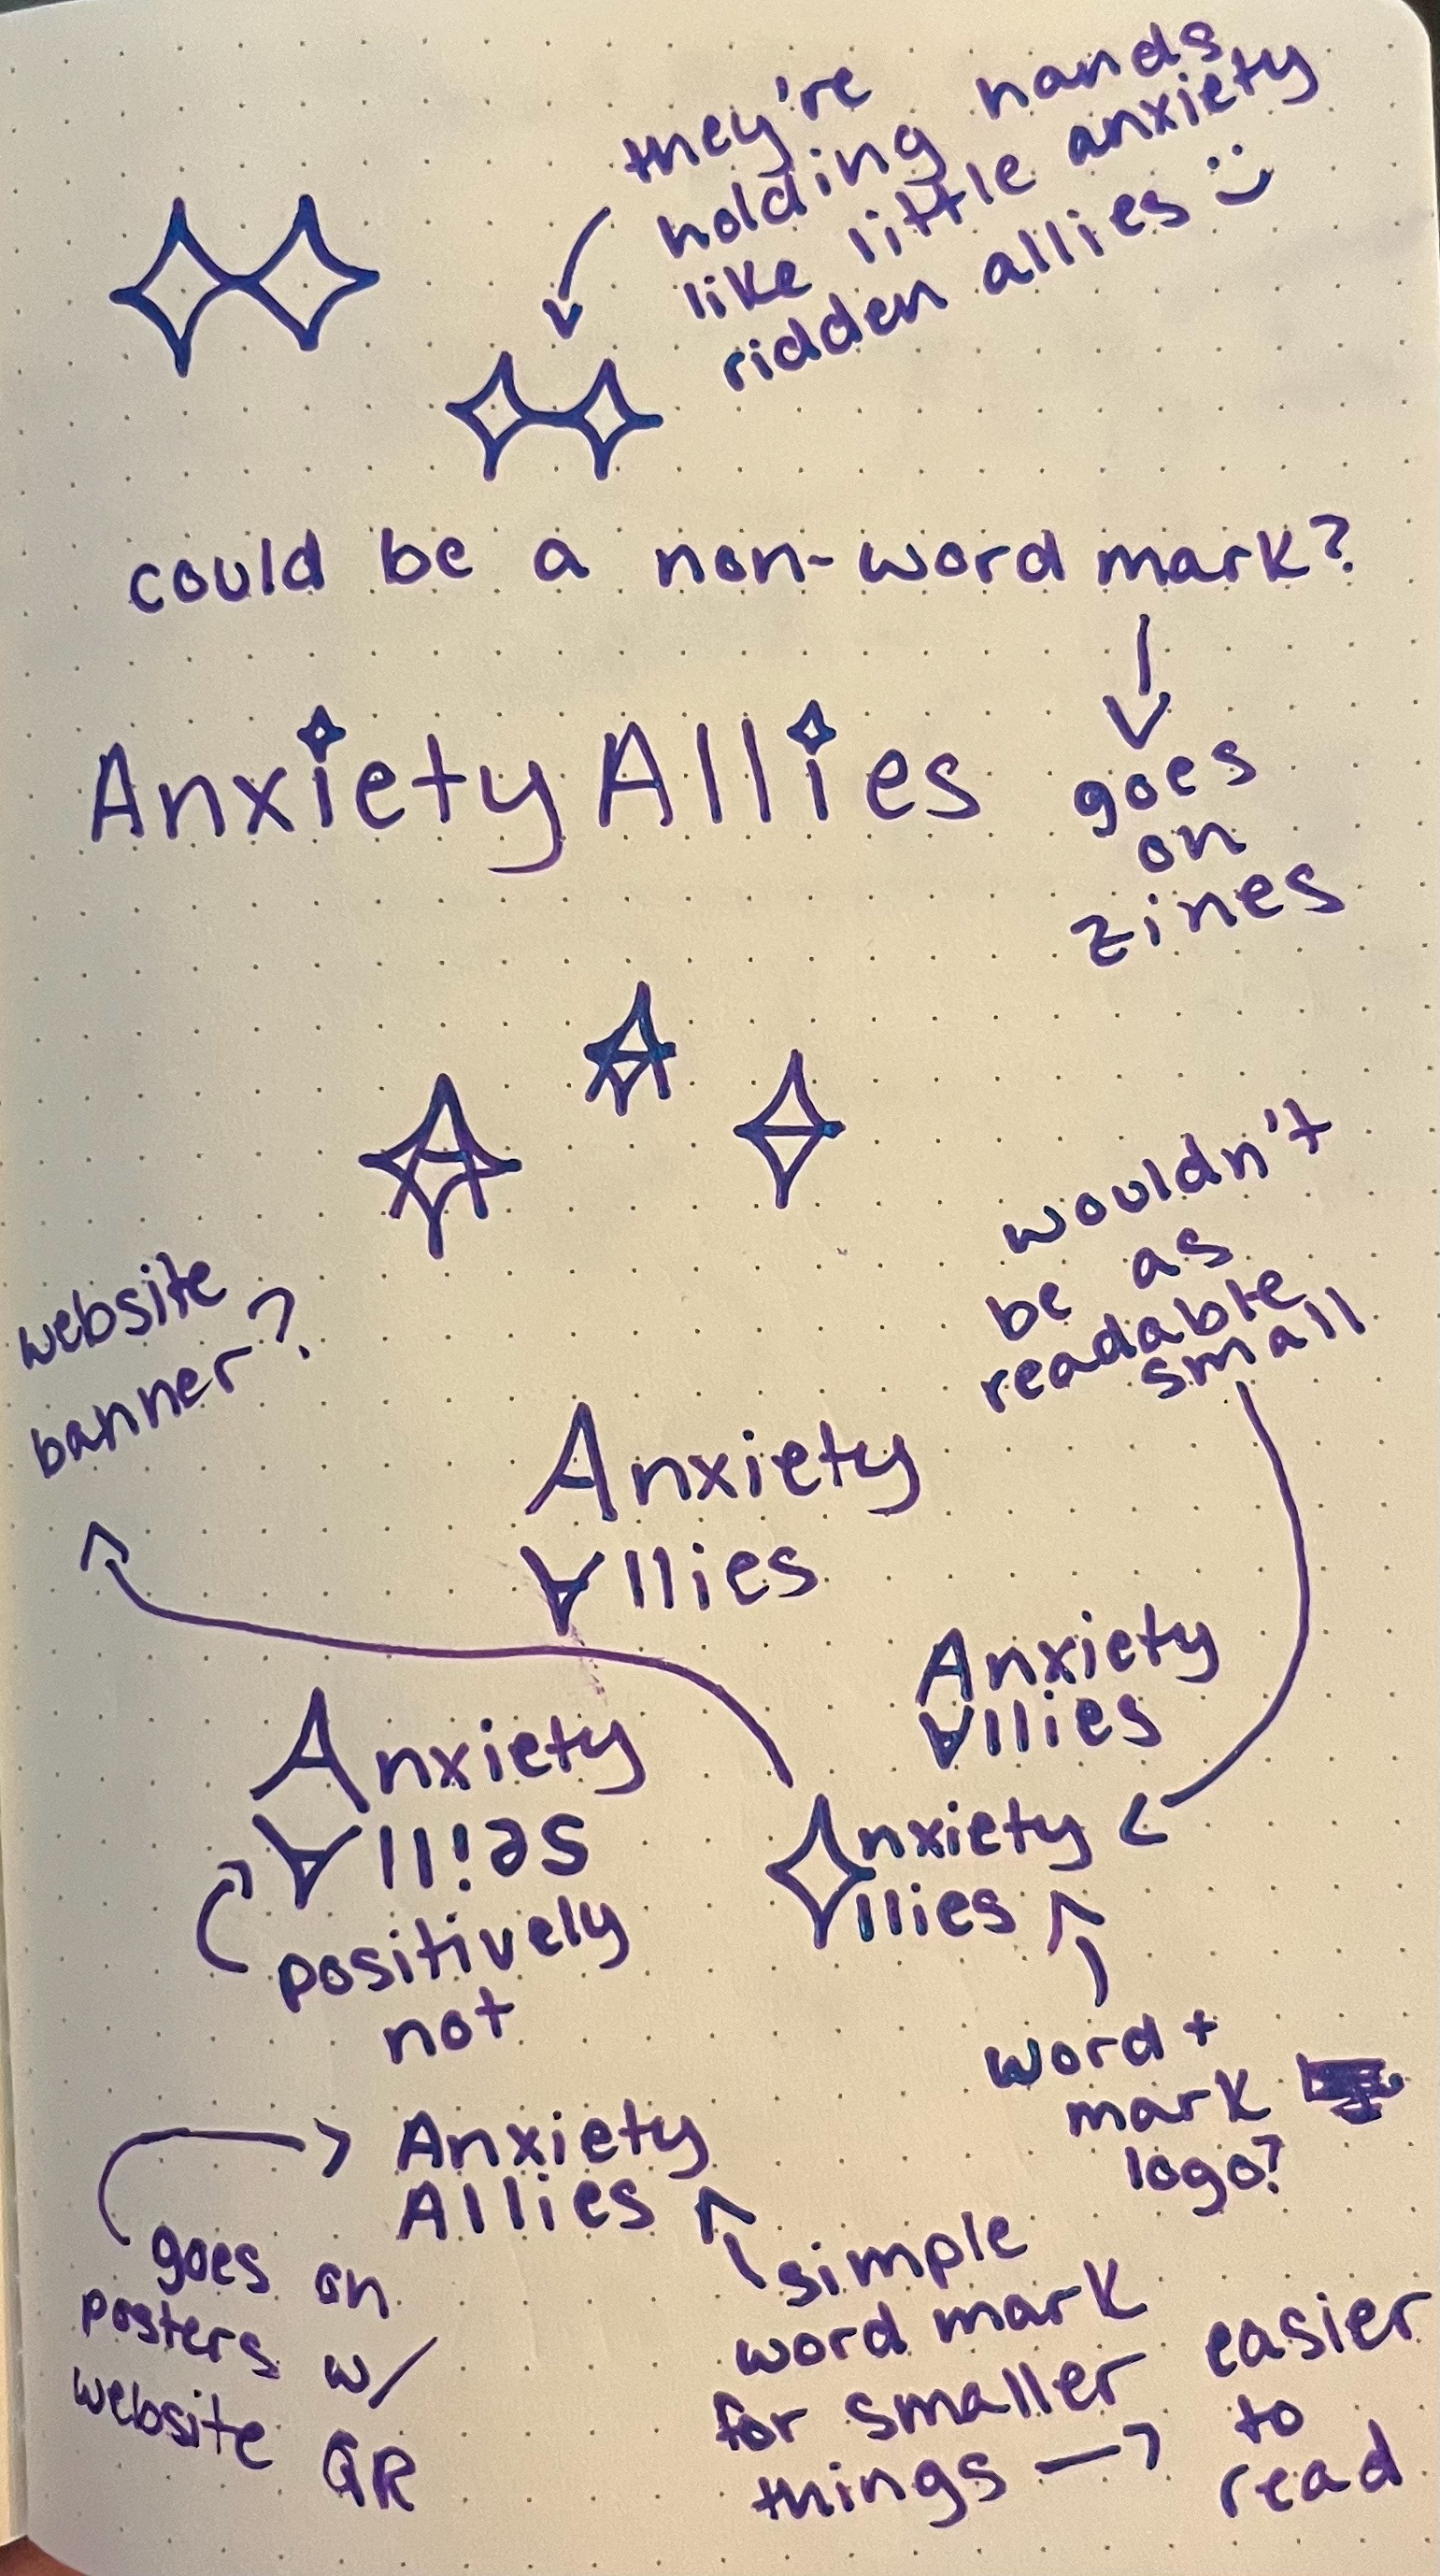 they're
holding hands
like little anxiety
ridden allies :)
could be a non-word mark?
Anxiety Allies
goes
on
zines
A
A
website
banner?
wouldn't
be as
readable
small
Anxiety
∀llies
Anxiety
∀llies
Anxiety
∀llies
positively
not
nxiety
llies
word +
mark
logo?
Anxiety
Allies
goes on
posters w/
website QR
simple
word mark
for smaller
things →
easier
to
read